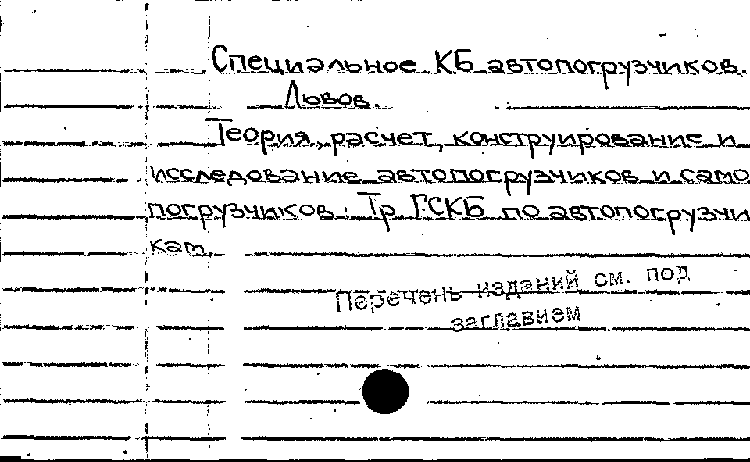 Специальное КБ автопогрузчиков.
Львов.
Теория, расчет, конструирование и
исследование автопогрузчиков и само
погрузчиков: Тр ГСКБ по автопогрузчи
кам.
Перечень изданий см. под
заглавием